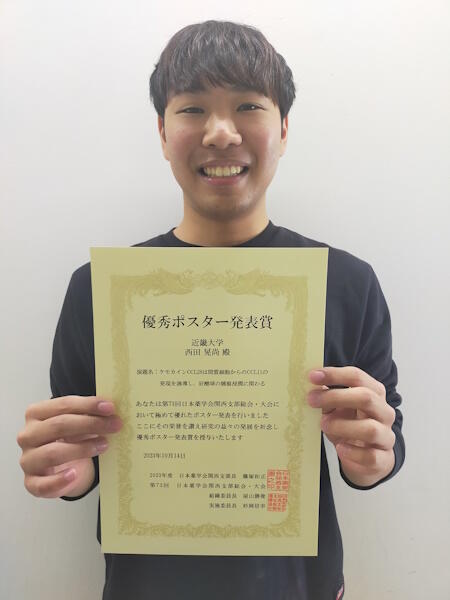 優秀ポスター発表賞
近畿大学
西田 晃尚 殿
演題名：ケモカインCCL28は間質細胞からのCCL11の
発現を誘導し、好酸球の腫瘍浸潤に関わる
あなたは第73回日本薬学会関西支部総会・大会に
おいて極めて優れたポスター発表を行いました
ここにその栄誉を讃え研究の益々の発展を祈念し
優秀ポスター発表賞を授与いたします
2023年10月14日
2023年度 日本薬学会関西支部長 藤塚和正
第73回 日本薬学会関西支部総会・大会
組織委員長 屋山勝俊
実施委員長 杉岡信幸